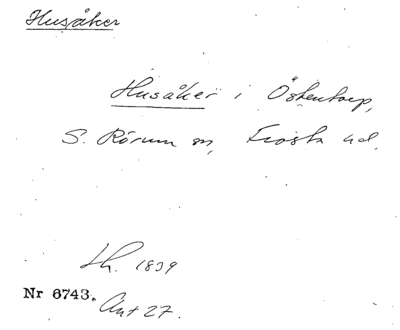 Husåker
Husåker i Östentorp,
S. Rörum sn, Frosta hd.
Lh. 1839
Nr 6743. Ant 27.